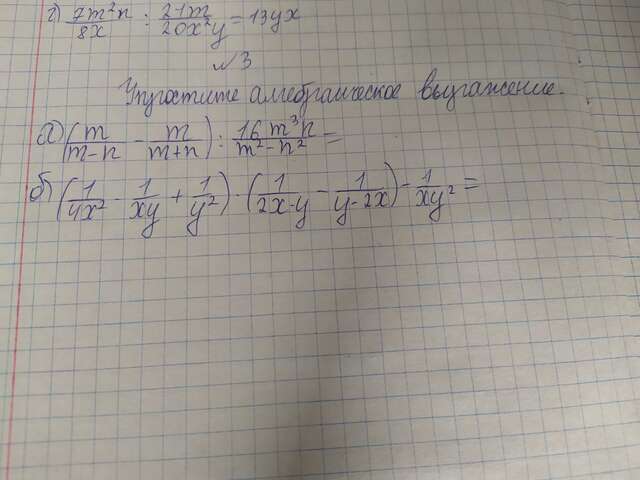 г) 7m²n/8x : 21m/20x²y = 13yx
№3
Упростите алгебраическое выражение.
а) (m/m-n - m/m+n) : 16m³n/m²-n² =
б) (1/4x² - 1/xy + 1/y²) · (1/2x-y - 1/y-2x) - 1/xy² =